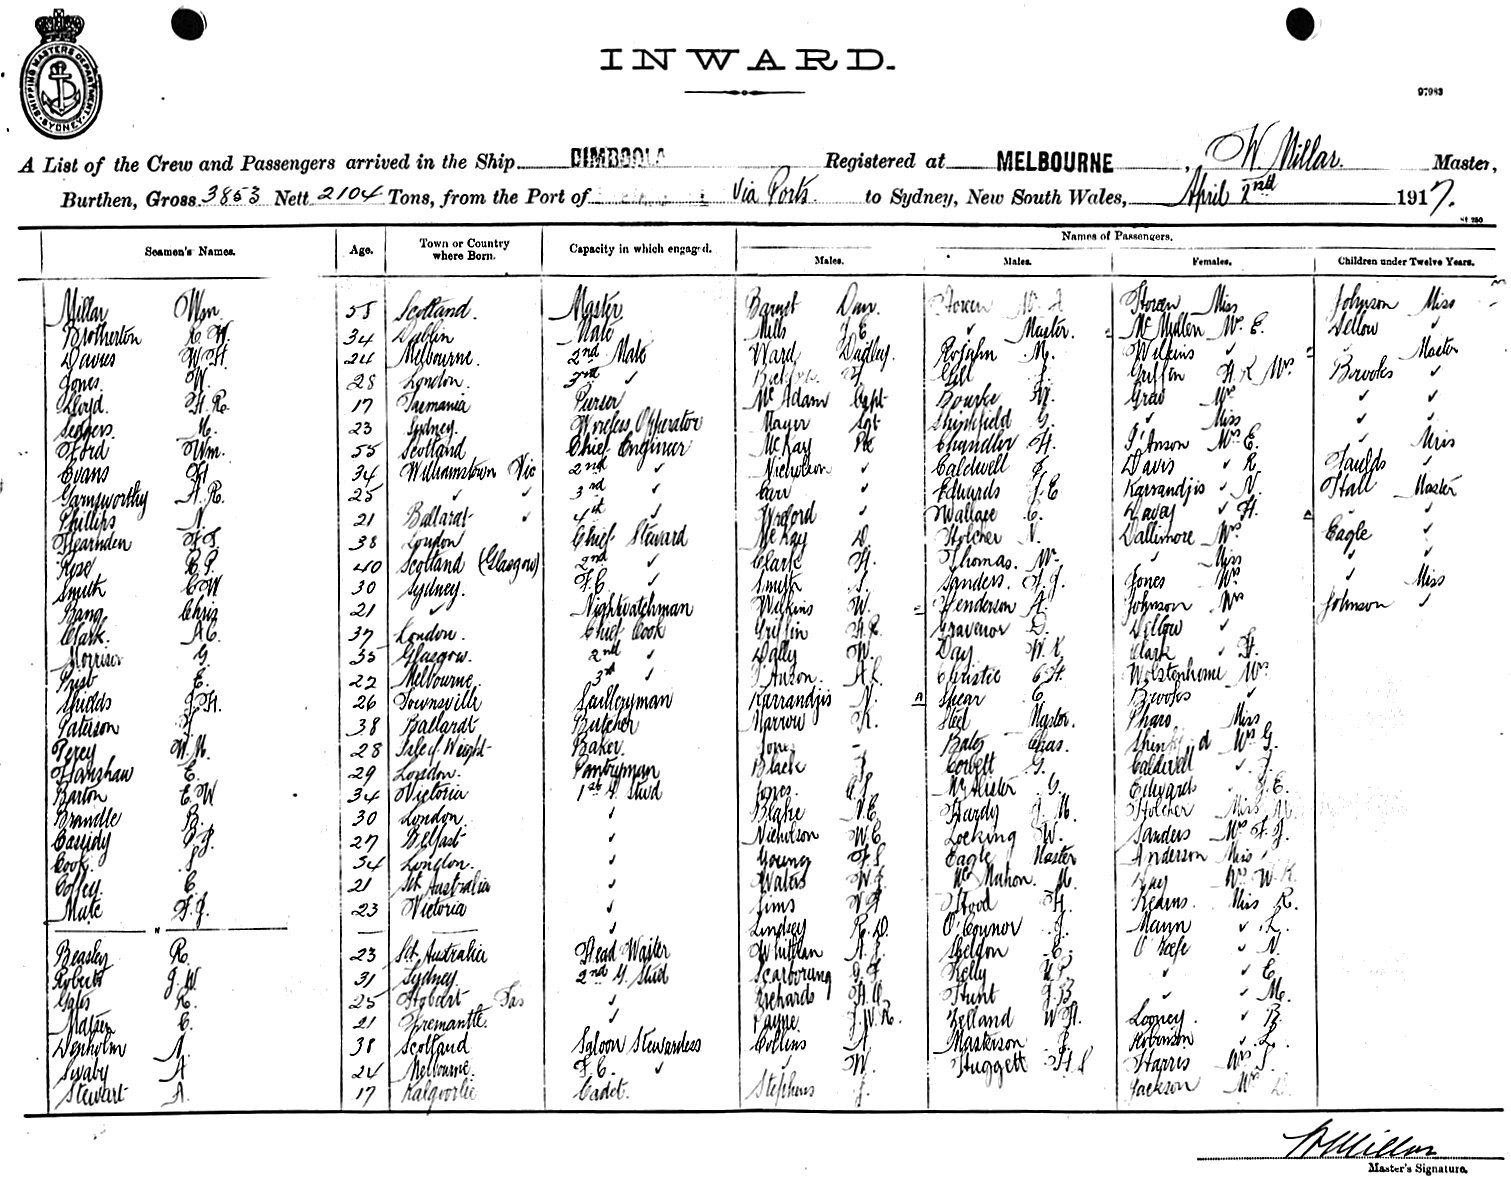 INWARD.
SHIPPING MASTERS DEPARTMENT SYDNEY
97983
A List of the Crew and Passengers arrived in the Ship DIMBOOLA Registered at MELBOURNE, W Millar. Master,
Burthen, Gross 3853 Nett 2104 Tons, from the Port of Via Ports. to Sydney, New South Wales, April 2nd 1917.
Seamen's Names. Age. Town or Country where Born. Capacity in which engaged. Names of Passengers.
Males. Males. Females. Children under Twelve Years.
Millar Wm. 58 Scotland. Master Barnet Miss Johnson Miss
Brotherton R. W. 34 Dublin Mate Mills J. E. ✓ Master. McMullen Mrs E. Dellow ✓
Davies W. H. 24 Melbourne. 2nd Mate Ward Dudley. M. Wilkins ✓ ✓ Master
Jones W. 28 London. 3rd ✓ Gill J. Griffin H R Mrs Brooks ✓
Lloyd. H. R. 17 Tasmania Purser McAdam Capt Bourke Gray Mrs ✓ ✓
M. 23 Sydney. Wireless Opperator Mayer Sgt Shinkfield G. ✓ Miss ✓ ✓
Ford Wm. 55 Scotland Chief Engineer McKay Pte Chandler H. I'Anson Mrs E. ✓ Miss
Evans H 34 Williamstown Vic 2nd ✓ Nicholson ✓ Caldwell J. Davis ✓ R. Faulds ✓
Garnsworthy A. R. 25 ✓ ✓ 3rd ✓ Carr ✓ Edwards J. E Karrandjis ✓ N. Hall Master
Phillips N. 21 Ballarat ✓ 4th ✓ Wreford ✓ Wallace C. Davey ✓ H. ✓
Hearnden F. J. 38 London Chief Steward McKay D. Holcher V. Dallimore Mrs Eagle ✓
Rose R. P. 40 Scotland (Glasgow) 2nd ✓ Clarke H. Thomas. W. ✓ Miss ✓ ✓
Smith C W 30 Sydney. F. C. ✓ Smith J. Sanders. F. J. Jones Mrs ✓ Miss
Bang Chris 21 ✓ ✓ Nightwatchman Wilkins W. Henderson A. Johnson Mrs Johnson ✓
Clark. A C. 37 London. Chief Cook Griffin H. R. Gravenor D. Dellow ✓
Morrison G. 35 Glasgow. 2nd ✓ Dally W. Day W. K. Clark H.
Prist E. 22 Melbourne. 3rd ✓ I'Anson. A. L. Christie C H. Wolstenhome Mrs
Shields J. H. 26 Townsville Sculleryman Karrandjis N. Spear C. Brooks ✓
Paterson F. 38 Ballarat Butcher Marrow R. Steel Master. Pharo. Miss
Percy W. M. 28 Isle of Weight Baker. Jones Bates Chas. Mrs G.
Hanshaw E. 29 London. Pantryman Black J. Corbett G. Caldwell ✓ J.
Barton E. W 34 Victoria 1st G. Stwd Jones. McAlister G. Edwards ✓ J. E.
Brandle B. 30 London. ✓ Blake Hardy J. M. Holcher Miss
Cassidy P. J. 27 Belfast ✓ Nicholson W. C. Locking W. Sanders Mrs F. J.
Cook. 34 London. ✓ Young F. S. Eagle Master Anderson Miss
Colley. C. 21 Sth Australia ✓ Waters W. J. McMahon. M. Day Mrs W. K.
Mate F. J. 23 Victoria ✓ Sims Hood H. Kearns. Miss R.
✓ Lindsey R. D. O'Connor J. Mann ✓ L.
Beasley R. 23 Sth Australia Head Waiter Whitman A. J. Sheldon E. O'Keefe ✓ N.
Roberts J. W. 31 Sydney. 2nd G. Stwd Scarboung Kelly ✓ ✓ E.
Gates R. 25 Hobart Tas ✓ Richards H. O. Hunt J. B. ✓ ✓ M.
Matsen C. 21 Fremantle. ✓ Payne. J. W. R. Zelland W H. Looney. ✓ B.
Denholm A. 38 Scotland Saloon Stewardess Collins A. Maskerson J. Robinson ✓ L.
Swaby A 24 Melbourne. F. C. ✓ W. Huggett H S Harris Mrs S.
Stewart A. 17 Kalgoorlie Cadet. Stephens J. Jackson Mrs
W Millar
Master's Signature.